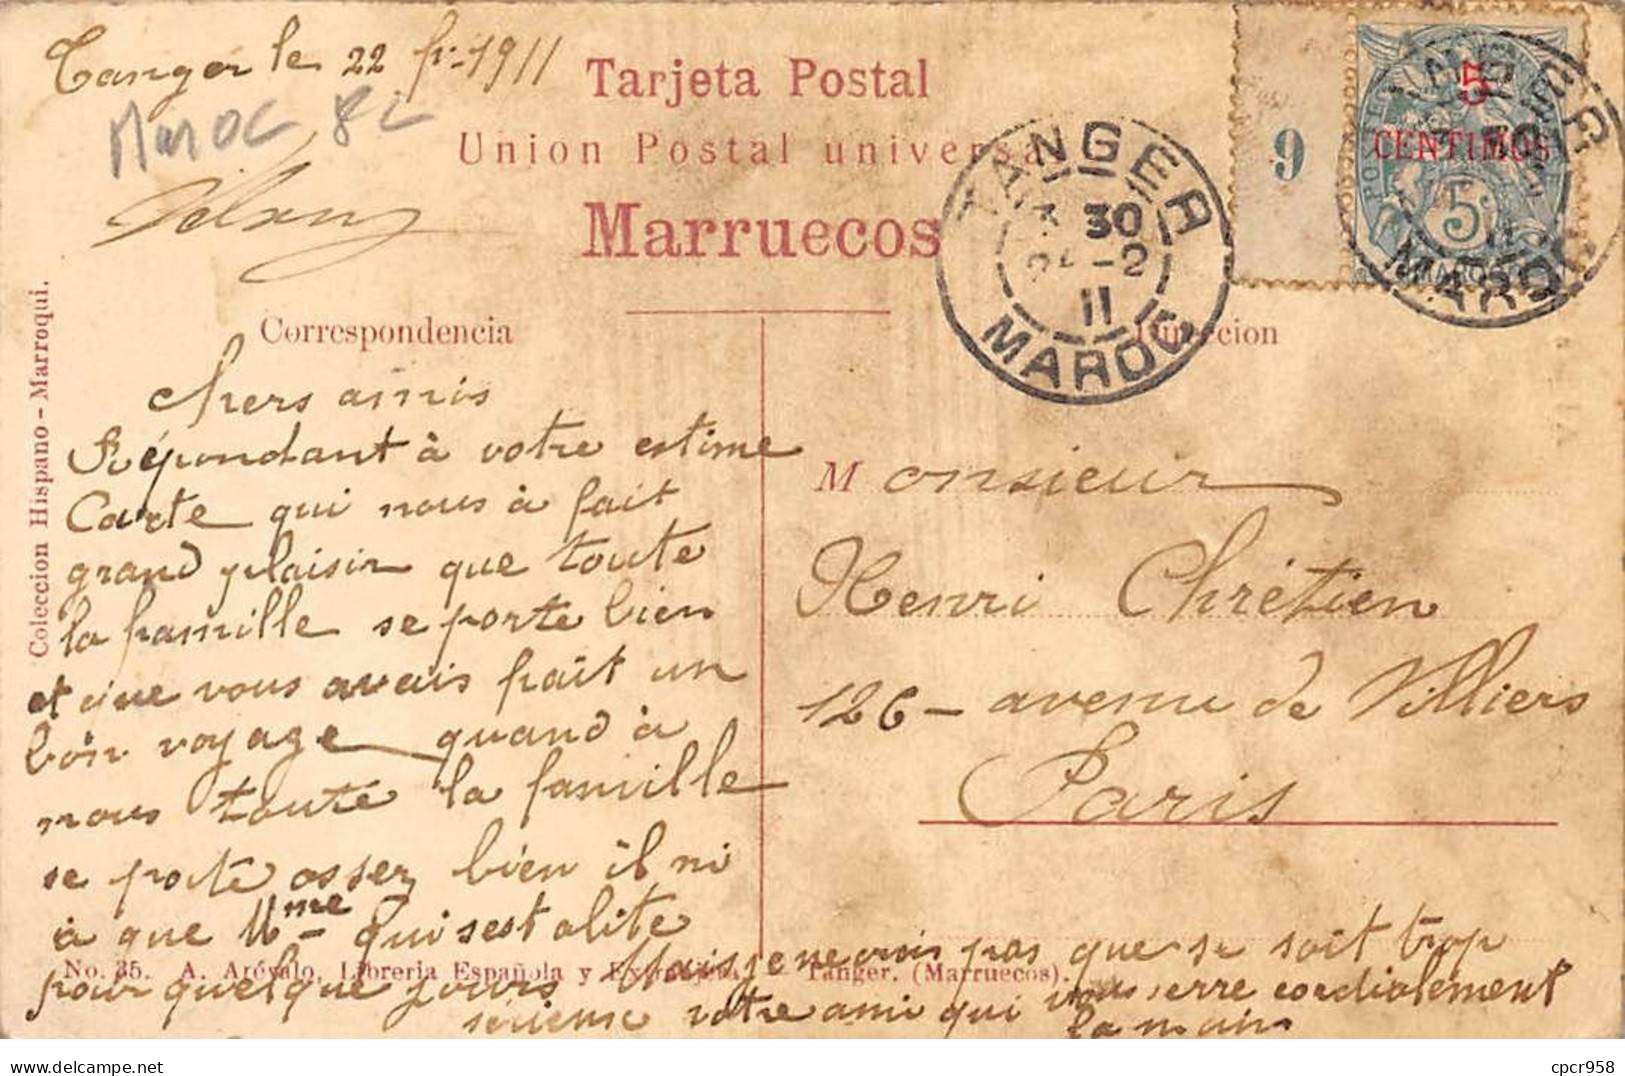 Tanger le 22 fr. 1911
Maroc 8c
Tarjeta Postal
Union Postal universal
Marruecos
TANGER
30
-2
11
MAROC
9
5
CENTIMOS
5
MAROC
Coleccion Hispano - Marroqui.
Correspondencia
Direccion
chers amis
Répondant à votre estime
Carte qui nous à fait
grand plaisir que toute
la famille se porte bien
et que vous avais fait un
bon voyage quand à
nous toute la famille
se porte asser bien il ni
à que Mme qui sest alite
pour quelque jours Mais je ne crois pas que se soit trop
serieuse votre ami qui vous serre cordialement
la main
Monsieur
Henri Chrétien
126 - avenue de Villiers
Paris
No. 35. A. Arévalo, Libreria Española y Extranjera, - Tanger. (Marruecos).
cpcr958